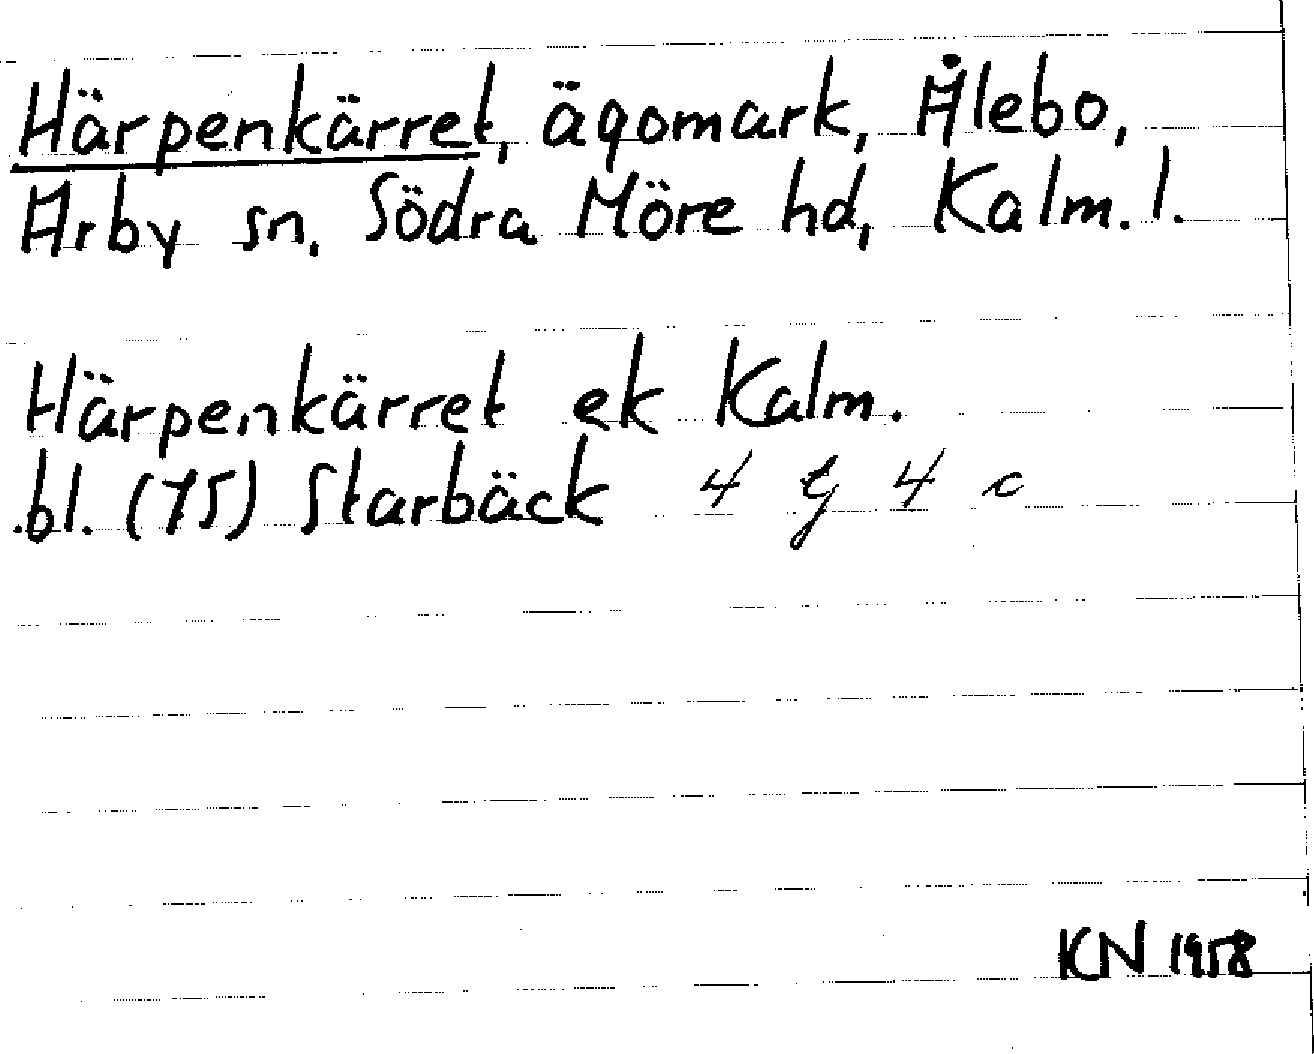 Härpenkärret, ägomark, Ålebo,
Arby sn, Södra Möre hd, Kalm. l.
Härpenkärret ek Kalm.
bl. (75) Starbäck 4 G 4 c
KN 1958